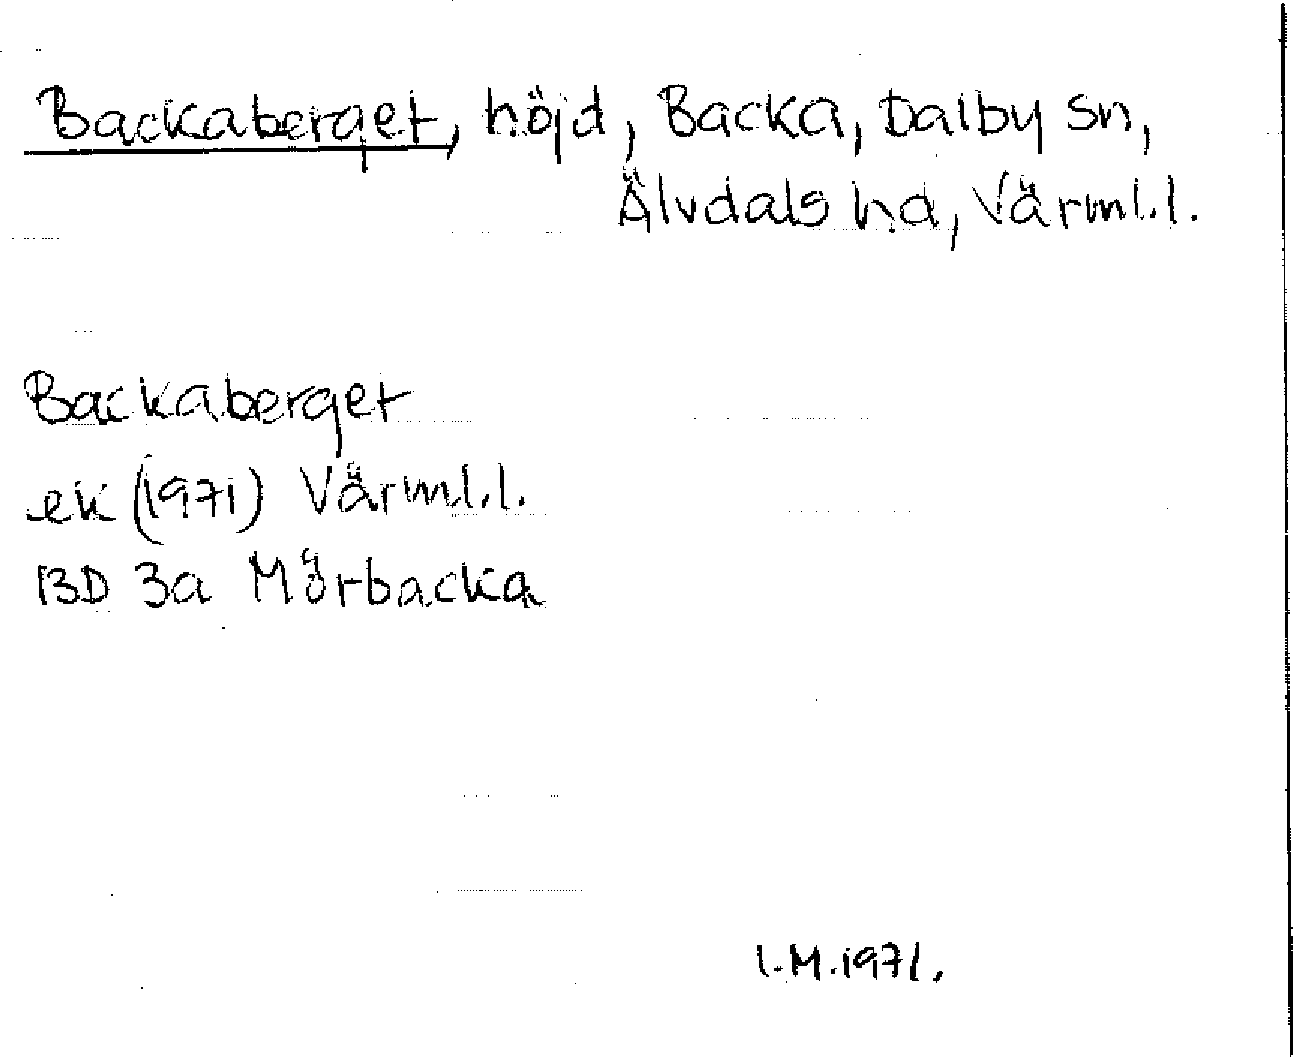 Backaberget, höjd, Backa, Dalby sn,
Älvdals hd, Värml.l.
Backaberget
ek (1971) Värml.l.
13D 3a Mörbacka
I.M.1971.